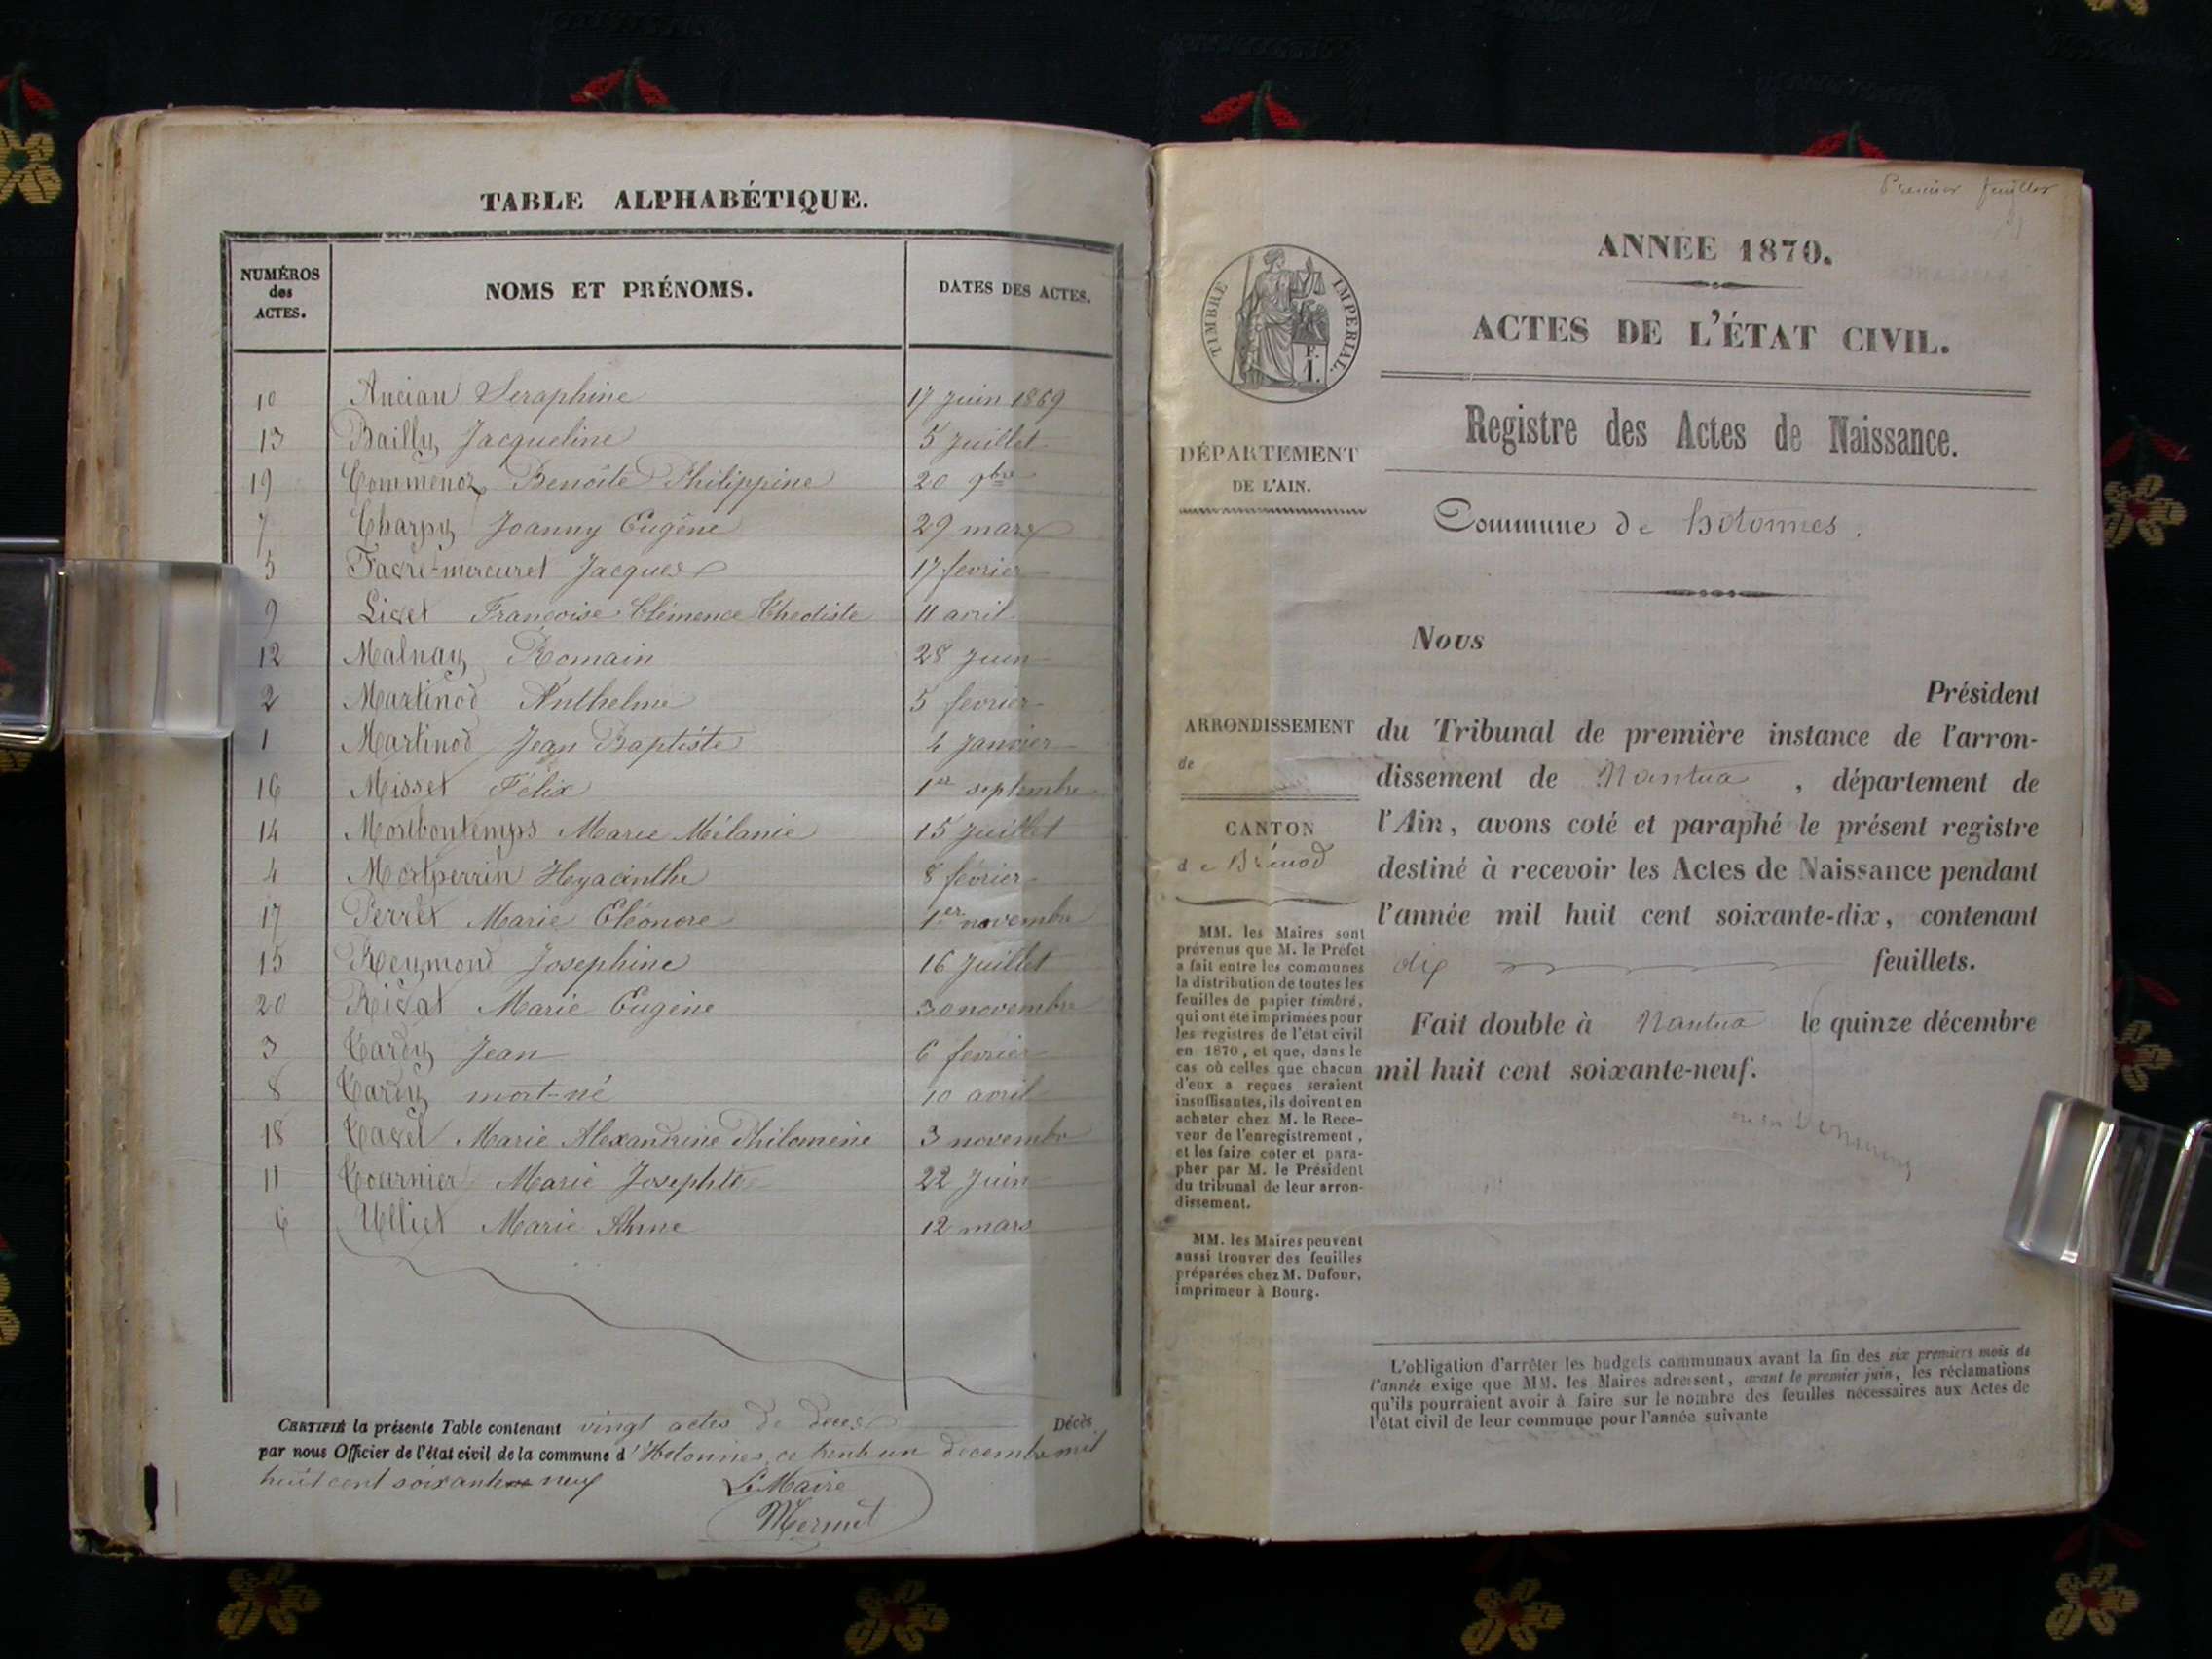 TABLE ALPHABÉTIQUE.
NUMÉROS des ACTES.
NOMS ET PRÉNOMS.
DATES DES ACTES.
10 Ancian Seraphine 17 juin 1869
13 Bailly Jacqueline 5 juillet
19 Commenoz Benoîte Philippine 20 9bre
7 Charpy Joanny Eugène 29 mars
5 Favre-mercuret Jacques 17 fevrier
9 Livet Françoise Clémence Theotiste 11 avril
12 Malnay Romain 28 juin
2 Martinod Anthelme 5 fevrier
1 Martinod Jean Baptiste 4 janvier
16 Misset Félix 1er septembre
14 Monbontemps Marie Mélanie 15 juillet
4 Montperrin Hyacinthe 8 fevrier
17 Perret Marie Eléonore 1er novembre
15 Reymond Josephine 16 juillet
20 Rivat Marie Eugénie 30 novembre
3 Tardy Jean 6 fevrier
8 Tardy mort-né 10 avril
18 Tavel Marie Alexandrine Philomène 3 novembre
11 Tournier Marie Josephte 22 juin
6 Ulliet Marie Anne 12 mars
CERTIFIÉ la présente Table contenant vingt actes de deces Décès
par nous Officier de l'état civil de la commune d'Hotonnes, ce trente un decembre mil
huit cent soixante neuf
Le Maire
Mermet
Premier feuillet
ANNÉE 1870.
ACTES DE L'ÉTAT CIVIL.
TIMBRE IMPERIAL.
F.
1.
Registre des Actes de Naissance.
DÉPARTEMENT
DE L'AIN.
Commune de hotonnes.
Nous
Président
ARRONDISSEMENT
de
du Tribunal de première instance de l'arron-
dissement de Nantua, département de
l'Ain, avons coté et paraphé le présent registre
destiné à recevoir les Actes de Naissance pendant
l'année mil huit cent soixante-dix, contenant
dix feuillets.
Fait double à Nantua le quinze décembre
mil huit cent soixante-neuf.
CANTON
de Brénod
MM. les Maires sont
prévenus que M. le Préfet
a fait entre les communes
la distribution de toutes les
feuilles de papier timbré,
qui ont été imprimées pour
les registres de l'état civil
en 1870, et que, dans le
cas où celles que chacun
d'eux a reçues seraient
insuffisantes, ils doivent en
acheter chez M. le Rece-
veur de l'enregistrement,
et les faire coter et para-
pher par M. le Président
du tribunal de leur arron-
dissement.
MM. les Maires peuvent
aussi trouver des feuilles
préparées chez M. Dufour,
imprimeur à Bourg.
L'obligation d'arrêter les budgets communaux avant la fin des six premiers mois de
l'année exige que MM. les Maires adressent, avant le premier juin, les réclamations
qu'ils pourraient avoir à faire sur le nombre des feuilles nécessaires aux Actes de
l'état civil de leur commune pour l'année suivante